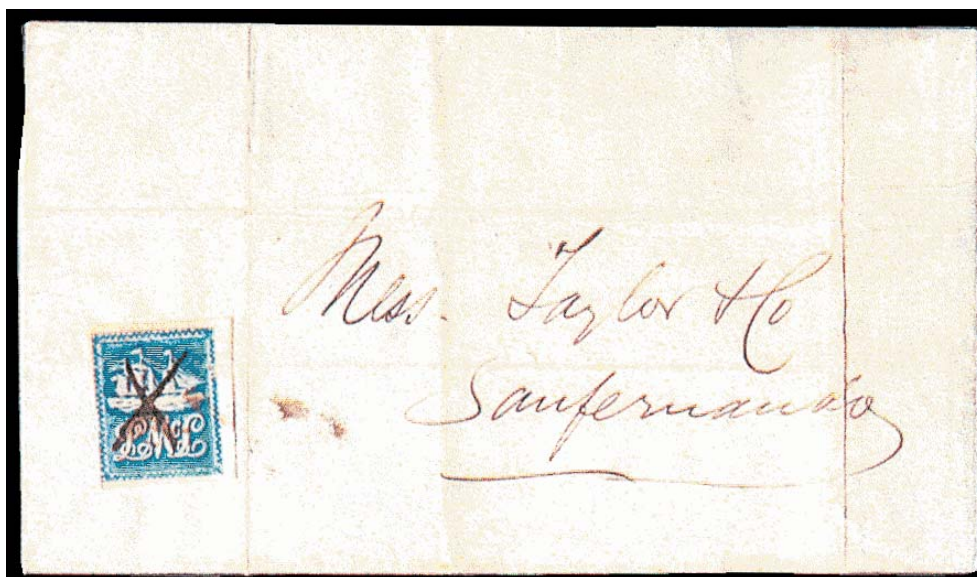 Mess. Taylor & Co
Sanfernando
LMcL